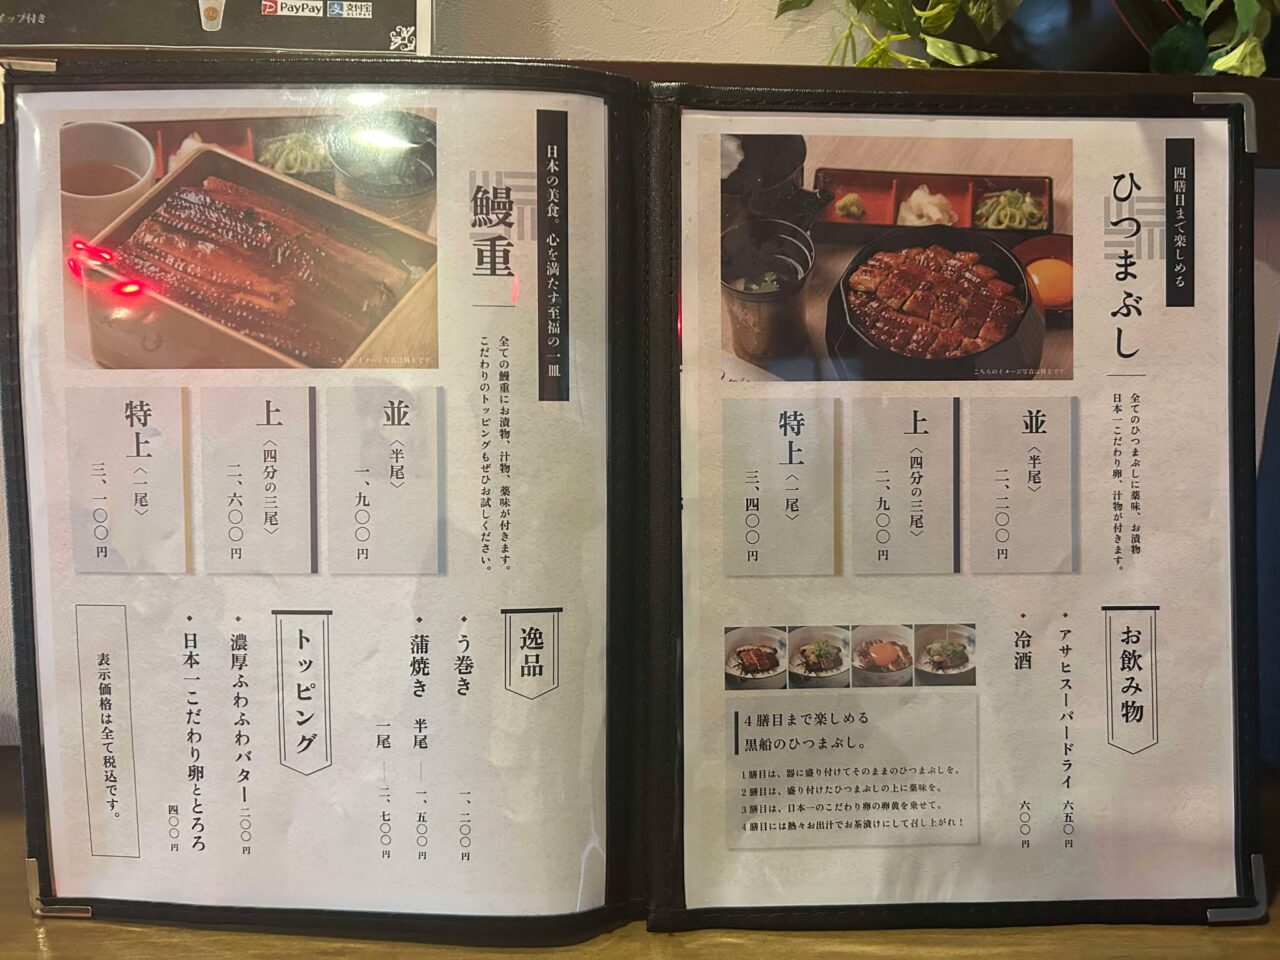 イップ付き
PayPay
支付宝
ALIPAY
日本の美食。心を満たす至福の一皿
鰻重
全ての鰻重にお漬物、汁物、薬味が付きます。
こだわりのトッピングもぜひお試しください。
こちらのイメージ写真は特上です。
並〈半尾〉
一、九〇〇円
上〈四分の三尾〉
二、六〇〇円
特上〈一尾〉
三、一〇〇円
逸品
う巻き 一、二〇〇円
蒲焼き 半尾 一、五〇〇円
一尾 二、七〇〇円
トッピング
濃厚ふわふわバター 二〇〇円
日本一こだわり卵ととろろ 四〇〇円
表示価格は全て税込です。
四膳目まで楽しめる
ひつまぶし
全てのひつまぶしに薬味、お漬物
日本一こだわり卵、汁物が付きます。
こちらのイメージ写真は特上です。
並〈半尾〉
二、二〇〇円
上〈四分の三尾〉
二、九〇〇円
特上〈一尾〉
三、四〇〇円
お飲み物
アサヒスーパードライ 六五〇円
冷酒 六〇〇円
4膳目まで楽しめる
黒船のひつまぶし。
1膳目は、器に盛り付けてそのままのひつまぶしを。
2膳目は、盛り付けたひつまぶしの上に薬味を。
3膳目は、日本一のこだわり卵の卵黄を乗せて。
4膳目には熱々お出汁でお茶漬けにして召し上がれ！